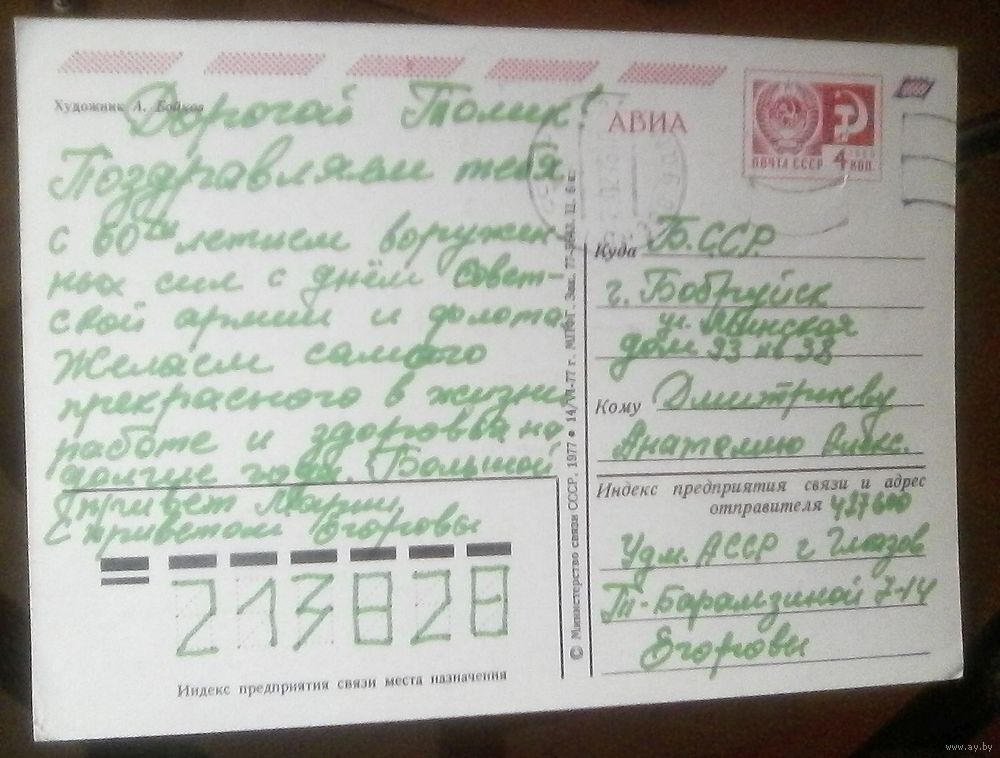 Художник А. Бойков
Дорогой Толик!
Поздравляем тебя
с 60ти летием воружен-
ных сил с днём Совет-
ской армии и флота.
Желаем самого
прекрасного в жизни
работе и здоровья на
долгие годы. Большой
привет Марии
С приветом Егоровы
213828
Индекс предприятия связи места назначения
© Министерство связи СССР. 1977 14/VI-77 г. МПФГ Зак. 77- Ц. 6 к.
АВИА
ПОЧТА СССР 4 КОП.
Куда Б.ССР.
г. Бобруйск
ул. Минская
дом 93 кв 38
Кому Дмитриеву
Анатолию Алекс.
Индекс предприятия связи и адрес
отправителя 427600
Удм. АССР г Глазов
Т-Барамзиной 7-14
Егоровы
www.ay.by